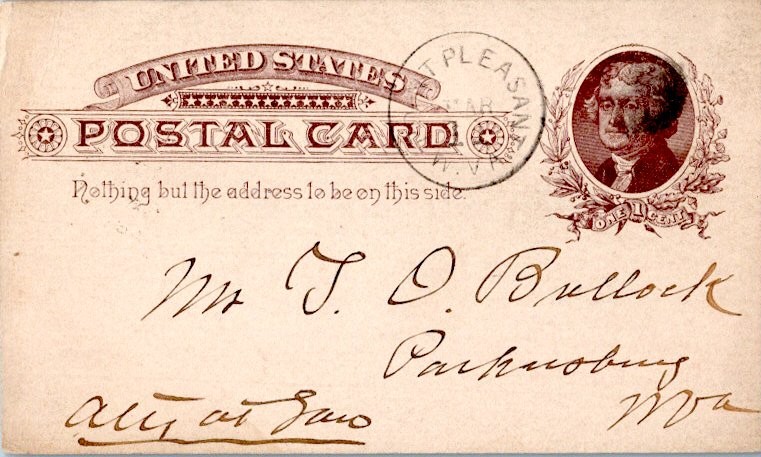 UNITED STATES
POSTAL CARD
Nothing but the address to be on this side.
T PLEASANT
MAR
1
W.VA
ONE 1 CENT
Mr T. O. Bullock
Parkersburg
WVa
Atty at Law